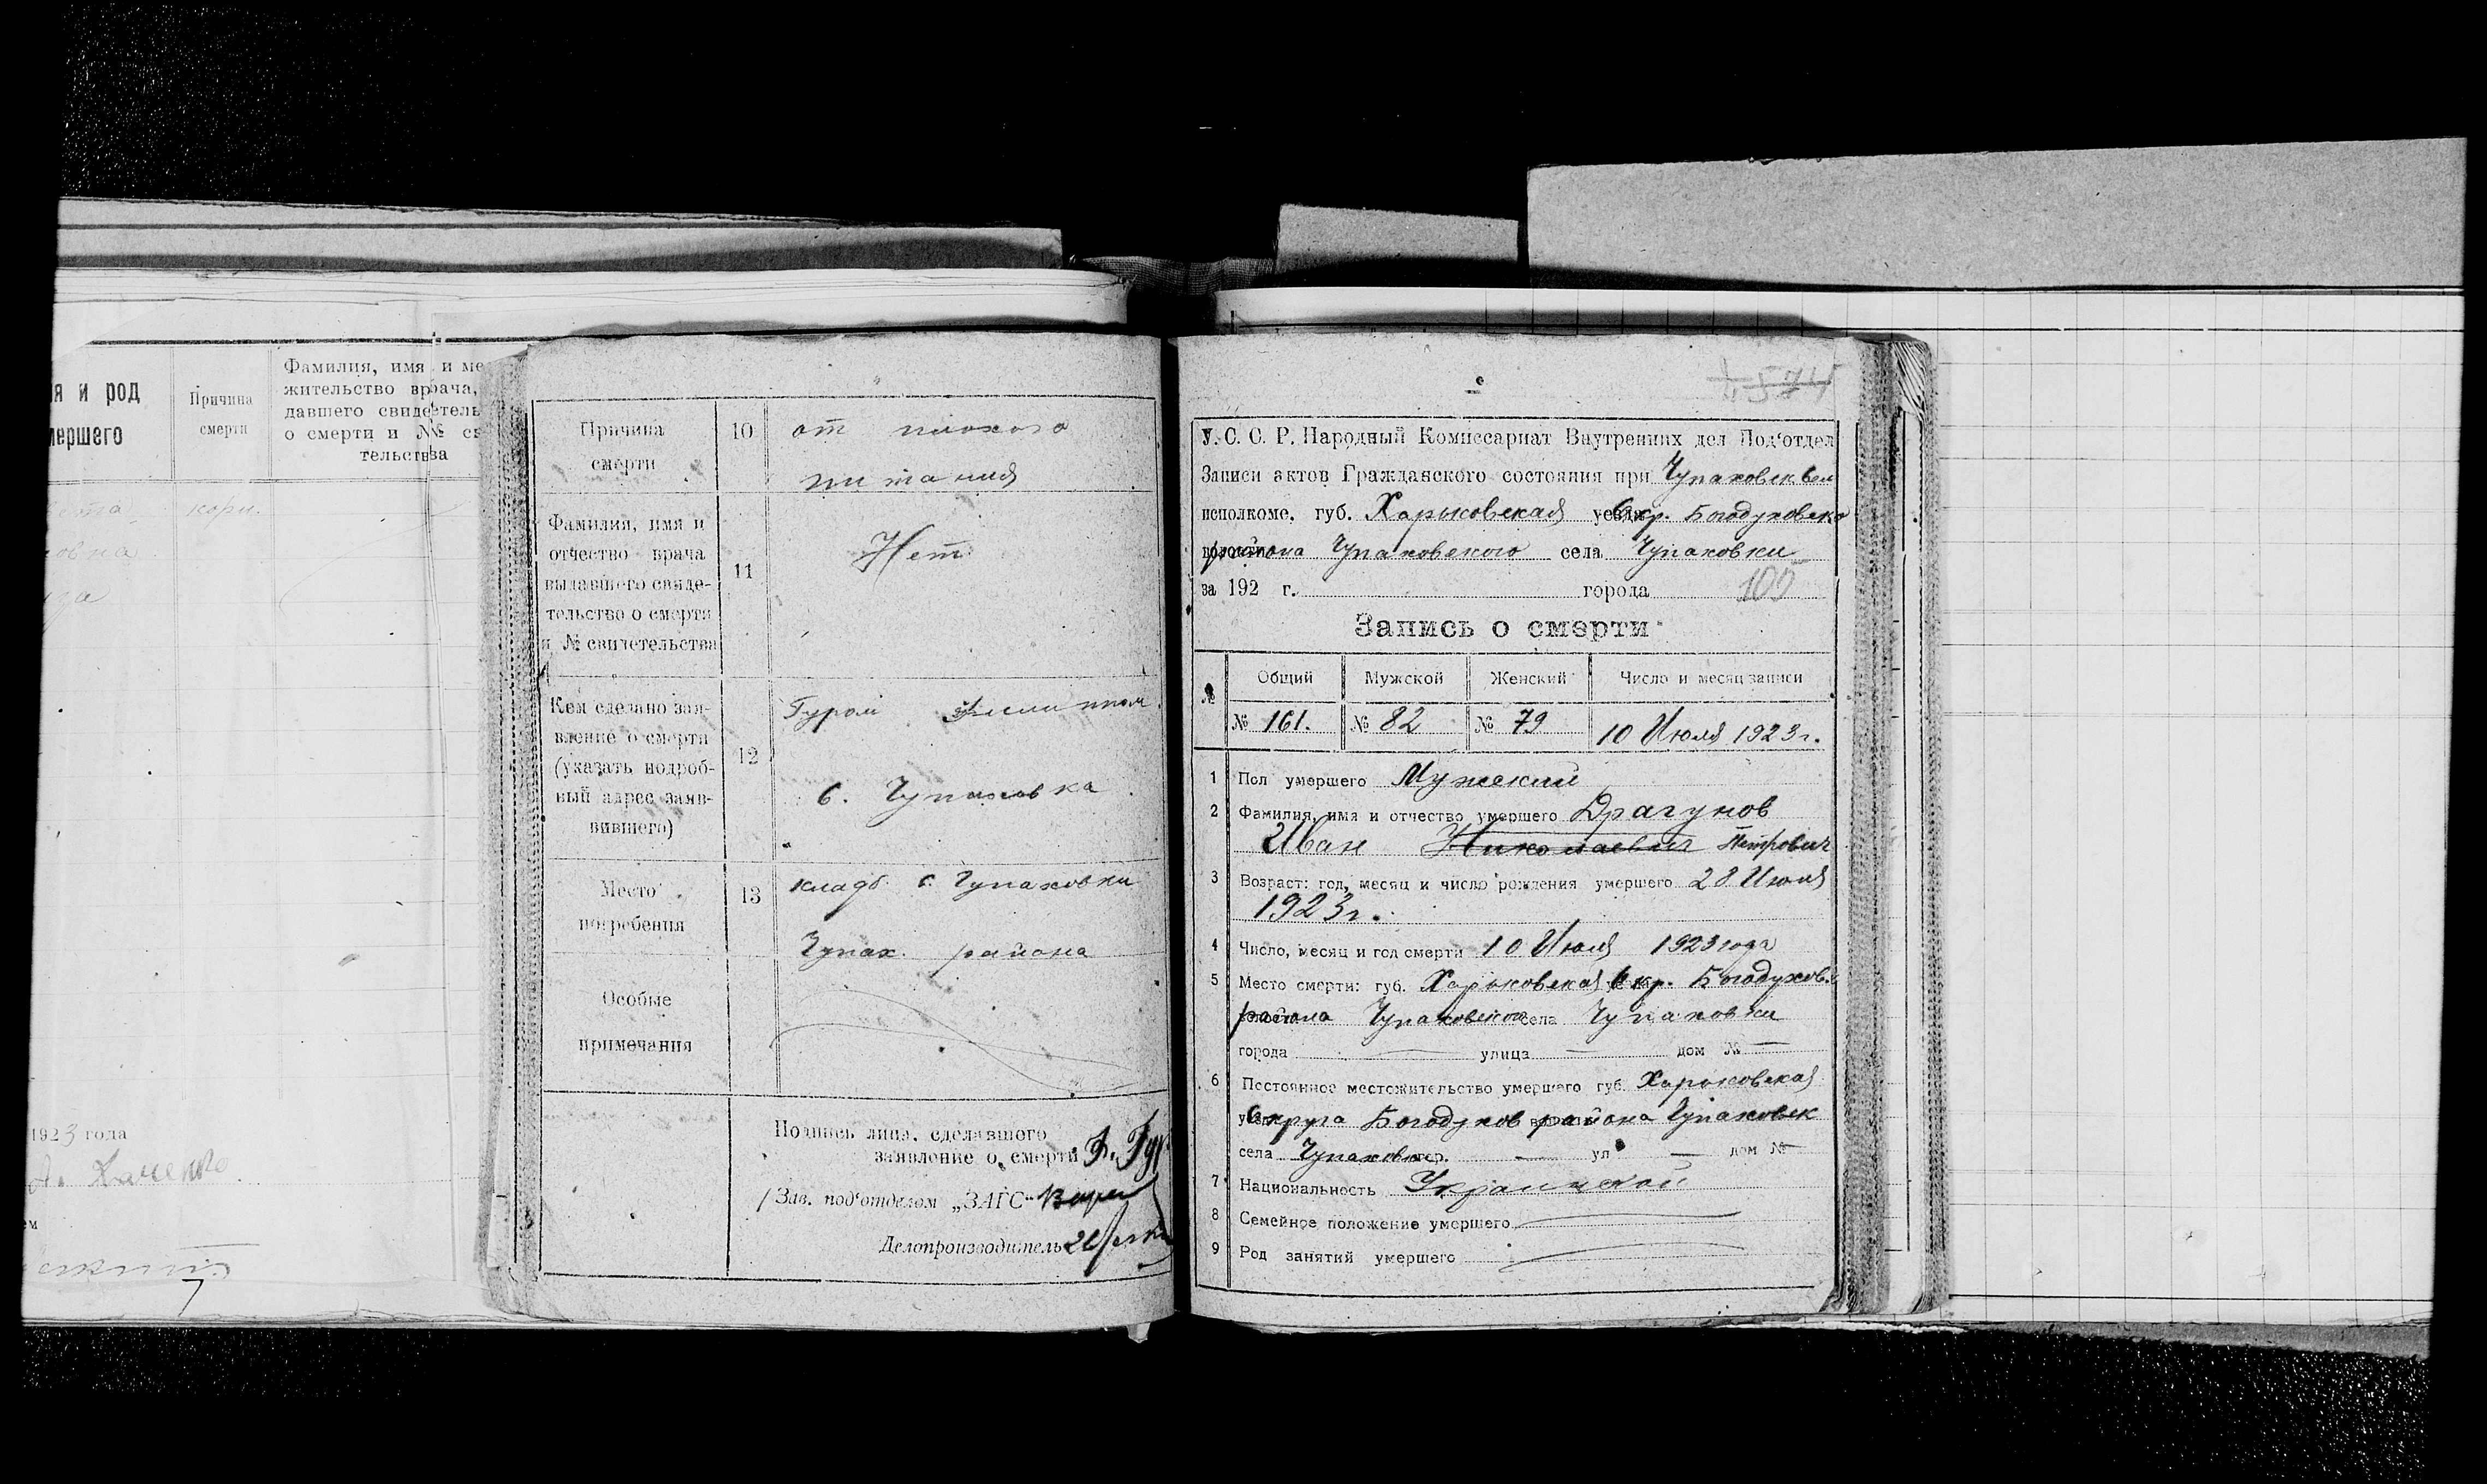 я и род
мершего
Причина
смерти
Фамилия, имя и ме
жительство врача,
давшего свидетель
о смерти и №№ св
тельства
кори.
овна
1923 года
Причина
смерти
10
от плохого
питания
Фамилия, имя и
отчество врача
выдавшего свиде-
тельство о смерти
и № свидетельства
11
Нет
Кем сделано зая-
вление о смерти
(указать подроб-
ный адрес заяв-
вившего)
12
Гурой
с. Чупаховка
Место
погребения
13
кладб. с. Чупаховки
Чупах. района
Особые
примечания
Подпись лица, сделавшего
заявление о смерти Ф. Гур
Зав. под'отделом „ЗАГС“
Делопроизводитель
574
У. С. С. Р. Народный Комиссариат Внутренних дел Под'отдел
Записи актов Гражданского состояния при Чупаховск
исполкоме, губ. Харьковская Окр. Богодуховско
района Чупаховского села Чупаховки
за 192 г. города 100
Запись о смерти
№
Общий
Мужской
Женский
Число и месяц записи
№ 161.
№ 82
№ 79
10 Июля 1923 г.
1 Пол умершего Мужский
2 Фамилия, имя и отчество умершего Драгунов
Иван Николаевич Петрович
3 Возраст: год, месяц и число рождения умершего 28 Июня
1923 г.
4 Число, месяц и год смерти 10 Июля 1923 года
5 Место смерти: губ. Харьковская Окр. Богодухов.
района Чупаховского села Чупаховки
города — улица — дом № —
6 Постоянное местожительство умершего губ. Харьковская
Округа Богодухов района Чупаховск
села Чупаховк гор. — ул — дом № —
7 Национальность Украинской
8 Семейное положение умершего
9 Род занятий умершего